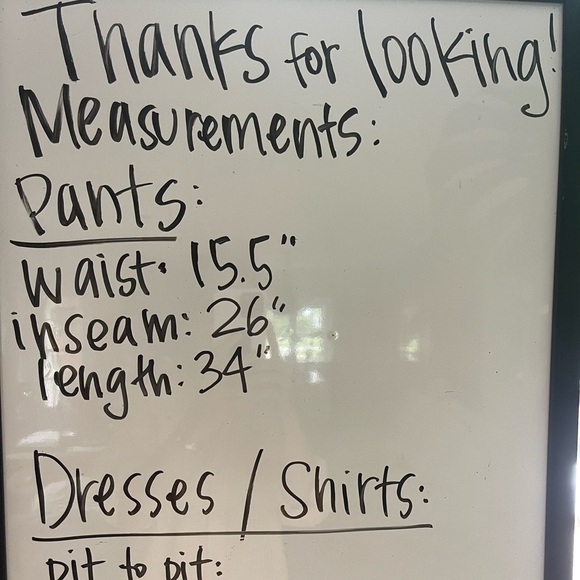 Thanks for looking!
Measurements:
Pants:
waist: 15.5"
inseam: 26"
length: 34"
Dresses / Shirts:
pit to pit: